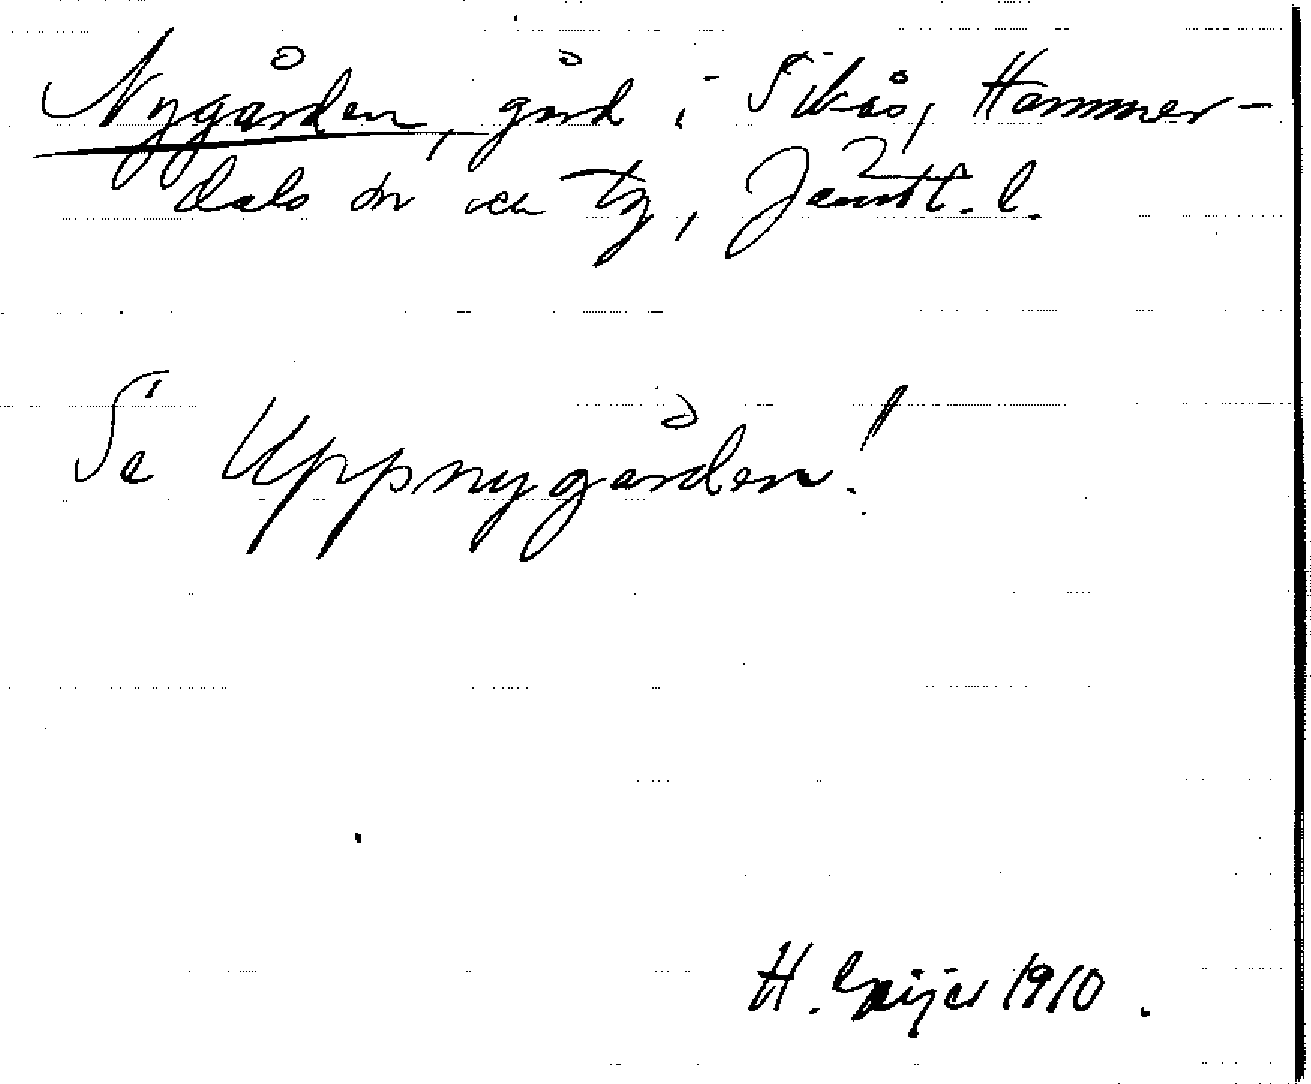 Nygården, gård i Sikås, Hammer-
dals sn och tg, Jämtl. l.
Se Uppnygården!
H. Geijer 1910.